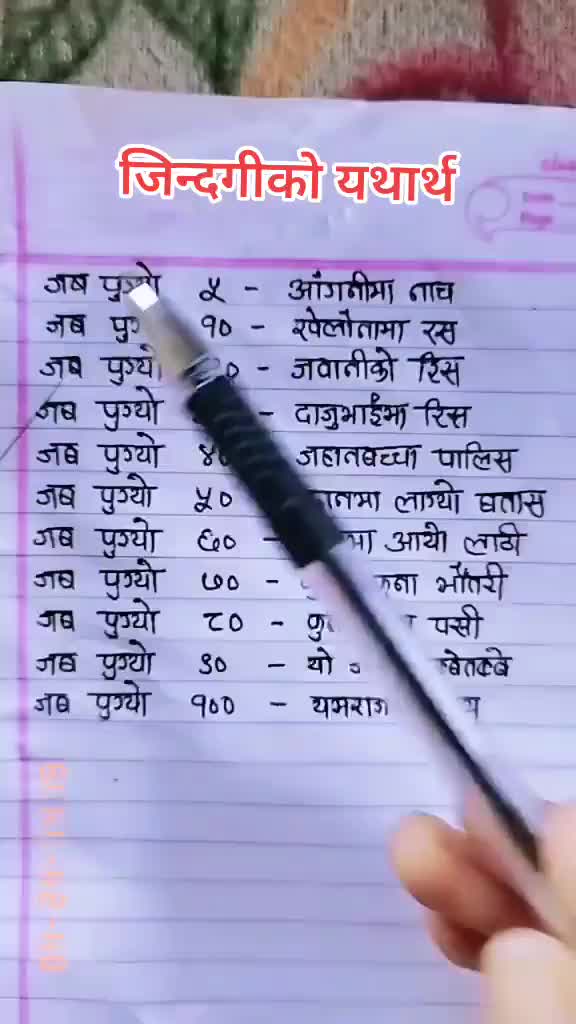 जिन्दगीको यथार्थ
जब पुग्यो ५ - आंगनीमा नाच
जब १० - खेलौनामा रस
जब पुग्यो - जवानीको रिस
जब पुग्यो - दाजुभाईमा रिस
जब पुग्यो जहानबच्चा पालिस
जब पुग्यो ५० लाग्यो बतास
जब पुग्यो ६० - आयो लाठी
जब पुग्यो ७० - भौंतरी
जब पुग्यो ८० - पसी
जब पुग्यो ९० - यो
जब पुग्यो १०० - यमराज